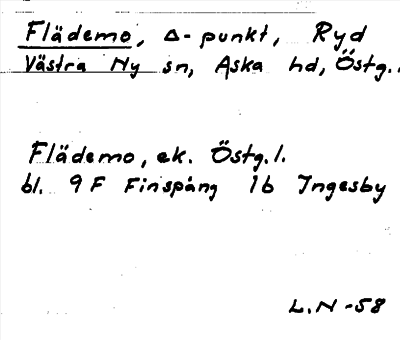 Flädemo, Δ-punkt, Ryd
Västra Ny sn, Aska hd, Östg..
Flädemo, ek. Östg.l.
bl. 9F Finspång 1b Ingesby
L.N -58